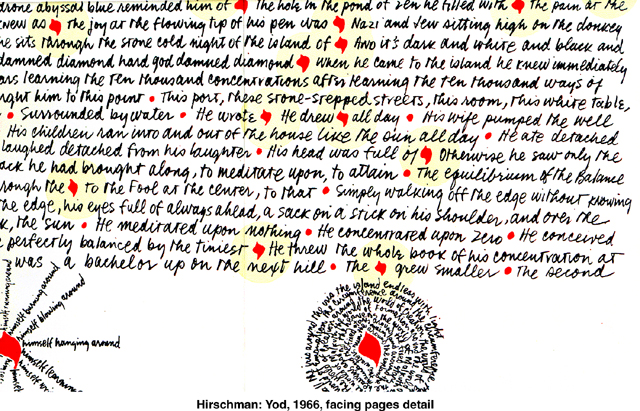 drone abyssal blue reminded him of The hole in the pond of zen he filled with The pain at the
knew as The joy at the flowing tip of his pen was Nazi and Jew sitting high on the donkey
he sits through the stone cold night of the island of And it's dark and white and black and
damned diamond hard god damned diamond When he came to the island he knew immediately
ars learning the ten thousand concentrations after learning the ten thousand ways of
ught him to this point • This port, these stone-stepped streets, this room, this white table,
• Surrounded by water • He wrote He drew all day • His wife pumped the well
His children ran into and out of the house like the sun all day • He ate detached
laughed detached from his laughter • His head was full of Otherwise he saw only the
ack he had brought along, to meditate upon, to attain • The equilibrium of the Balance
rough the to the Fool at the center, to that • Simply walking off the edge without knowing
the edge, his eyes full of always ahead, a sack on a stick on his shoulder, and over the
k, the Sun • He meditated upon nothing • He concentrated upon Zero • He conceived
perfectly balanced by the tiniest He threw the whole book of his concentration at
was a bachelor up on the next hill • The grew smaller • The second
himself running around
himself burning around
himself blowing around
himself hanging around
himself
Hirschman: Yod, 1966, facing pages detail